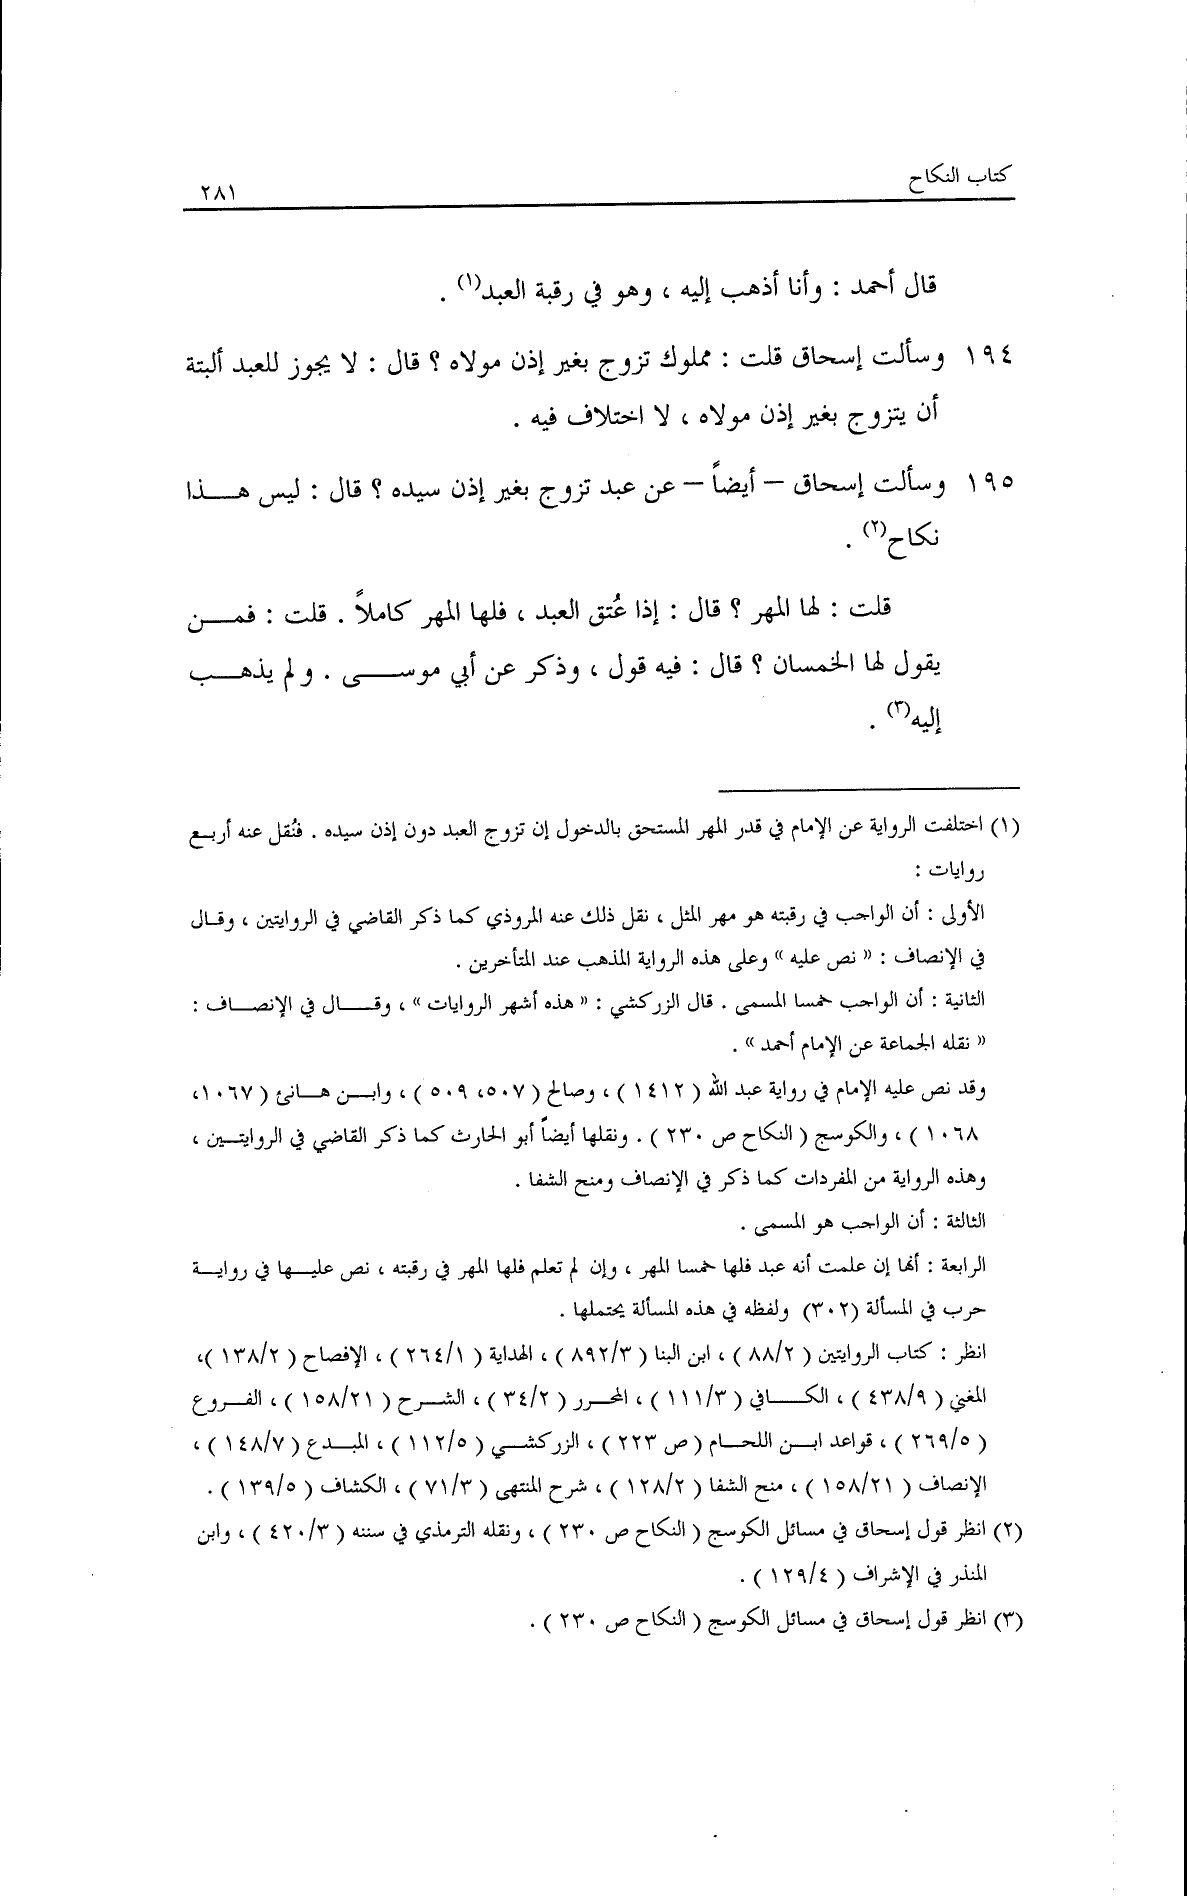 كتاب النكاح
٢٨١
قال أحمد : وأنا أذهب إليه ، وهو في رقبة العبد(١) .
١٩٤ وسألت إسحاق قلت : مملوك تزوج بغير إذن مولاه ؟ قال : لا يجوز للعبد ألبتة
أن يتزوج بغير إذن مولاه ، لا اختلاف فيه .
١٩٥ وسألت إسحاق – أيضاً – عن عبد تزوج بغير إذن سيده ؟ قال : ليس هـذا
نكاح(٢) .
قلت : لها المهر ؟ قال : إذا عُتق العبد ، فلها المهر كاملاً . قلت : فمـن
يقول لها الخمسان ؟ قال : فيه قول ، وذكر عن أبي موسـى . ولم يذهـب
إليه(٣) .
(١) اختلفت الرواية عن الإمام في قدر المهر المستحق بالدخول إن تزوج العبد دون إذن سيده . فنُقل عنه أربـع
روايات :
الأولى : أن الواجب في رقبته هو مهر المثل ، نقل ذلك عنه المروذي كما ذكر القاضي في الروايتين ، وقـال
في الإنصاف : « نص عليه » وعلى هذه الرواية المذهب عند المتأخرين .
الثانية : أن الواجب خمسا المسمى . قال الزركشي : « هذه أشهر الروايات » ، وقـال في الإنصـاف :
« نقله الجماعة عن الإمام أحمد » .
وقد نص عليه الإمام في رواية عبد الله ( ١٤١٢ ) ، وصالح ( ٥٠٧، ٥٠٩ ) ، وابـن هـانئ ( ١٠٦٧،
١٠٦٨ ) ، والكوسج ( النكاح ص ٢٣٠ ) . ونقلها أيضاً أبو الحارث كما ذكر القاضي في الروايتـين ،
وهذه الرواية من المفردات كما ذكر في الإنصاف ومنح الشفا .
الثالثة : أن الواجب هو المسمى .
الرابعة : أنها إن علمت أنه عبد فلها خمسا المهر ، وإن لم تعلم فلها المهر في رقبته ، نص عليـها في روايـة
حرب في المسألة (٣٠٢) ولفظه في هذه المسألة يحتملها .
انظر : كتاب الروايتين ( ٨٨/٢ ) ، ابن البنا ( ٨٩٢/٣ ) ، الهداية ( ٢٦٤/١ ) ، الإفصاح ( ١٣٨/٢ )،
المغني ( ٤٣٨/٩ ) ، الكـافي ( ١١١/٣ ) ، المحرر ( ٣٤/٢ ) ، الشـرح ( ١٥٨/٢١ ) ، الفـروع
( ٢٦٩/٥ ) ، قواعد ابـن اللحـام ( ص ٢٢٣ ) ، الزركشـي ( ١١٢/٥ ) ، المبـدع ( ١٤٨/٧ ) ،
الإنصاف ( ١٥٨/٢١ ) ، منح الشفا ( ١٢٨/٢ ) ، شرح المنتهى ( ٧١/٣ ) ، الكشاف ( ١٣٩/٥ ) .
(٢) انظر قول إسحاق في مسائل الكوسج ( النكاح ص ٢٣٠ ) ، ونقله الترمذي في سننه ( ٤٢٠/٣ ) ، وابن
المنذر في الإشراف ( ١٢٩/٤ ) .
(٣) انظر قول إسحاق في مسائل الكوسج ( النكاح ص ٢٣٠ ) .